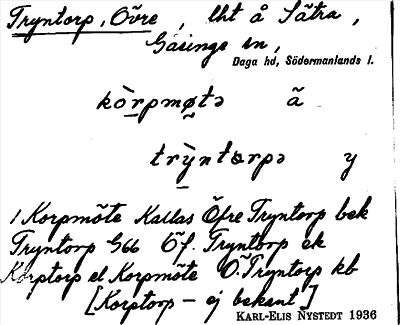 Tryntorp, Övre, lht å Sätra,
Gåsinge sn,
Daga hd, Södermanlands l.
kòrpmøtə ã
trỳntorpə y
1 Korpmöte Kallas Öfre Tryntorp bek
Tryntorp G66 Öf. Tryntorp ek
Korptorp el Korpmöte Ö. Tryntorp kb
[Korptorp – ej bekant]
KARL-ELIS NYSTEDT 1936